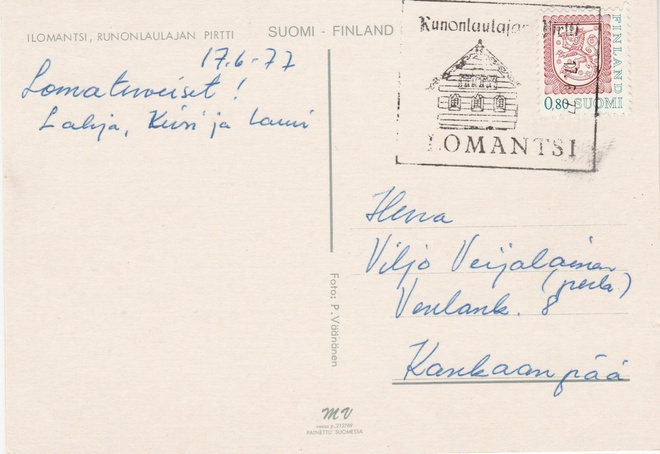 ILOMANTSI, RUNONLAULAJAN PIRTTI
SUOMI - FINLAND
17.6-77
Lomaterveiset!
Lahja, Kirsi ja Lauri
Runonlaulajan Pirtti
ILOMANTSI
FINLAND
0,80 SUOMI
Herra
Viljo Veijalainen
(perh.)
Venlank. 8
Kankaanpää
Foto: P. Väänänen
MV
PAINETTU SUOMESSA